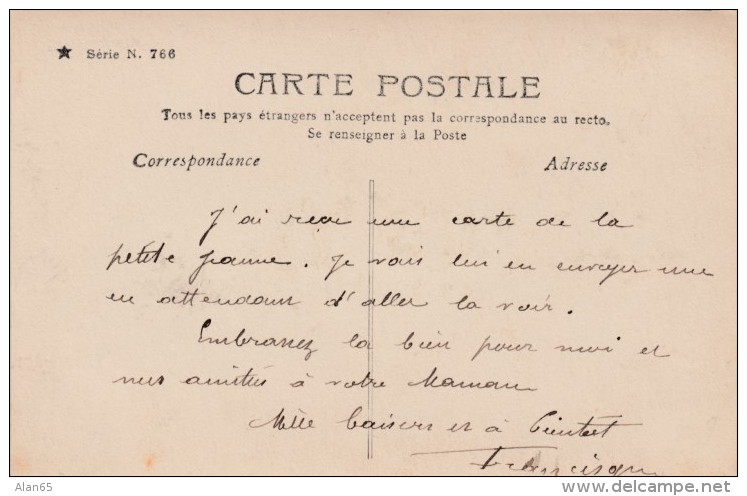 ★ Série N. 766
CARTE POSTALE
Tous les pays étrangers n'acceptent pas la correspondance au recto.
Se renseigner à la Poste
Correspondance Adresse
J'ai reçu une carte de la
petite Jeanne. Je vais lui en envoyer une
en attendant d'aller la voir.
Embrassez la bien pour moi et
mes amitiés à votre Maman
Mille baisers et à bientôt
Francisque
Alan65
delcampe.net